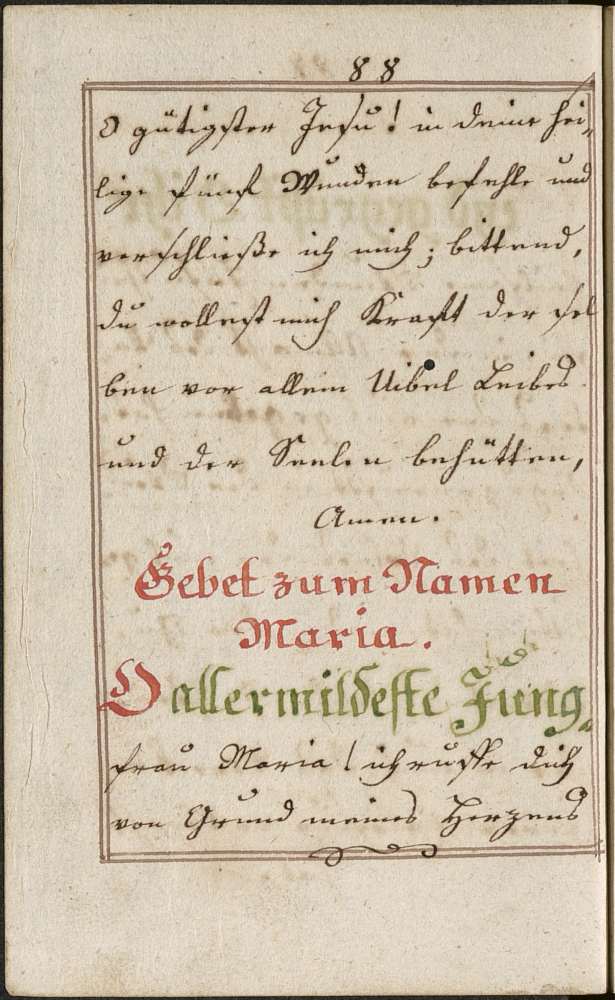 88
O gütigster Jesu! in deine hei-
lige fünf Wunden befehle und
verschließe ich mich; bittend,
du wollest mich Kraft der sel
ben vor allem Uibel Leibes
und der Seelen behütten,
Amen.
Gebet zum Namen
Maria.
O allermildeste Jung-
frau Maria! ich ruffe dich
von Grund meines Herzens